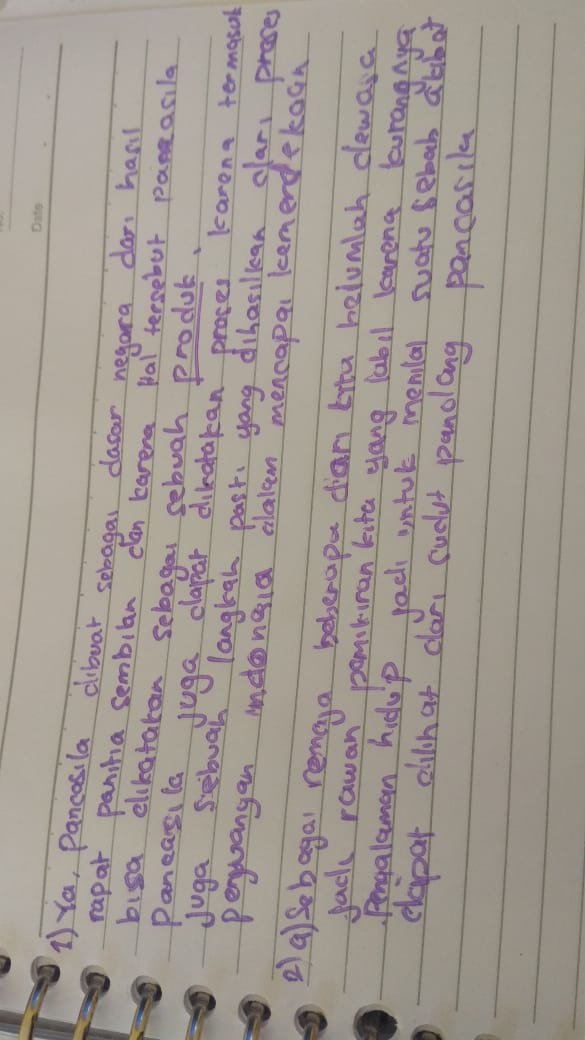 Date
1) Ya, Pancasila dibuat sebagai dasar negara dari hasil
rapat panitia sembilan dan karena hal tersebut pancasila
bisa dikatakan sebagai sebuah produk.
Pancasila juga dapat dikatakan proses karena termasuk
juga sebuah langkah pasti yang dihasilkan dari proses
perjuangan indonesia dalam mencapai kemerdekaan
2) a) Sebagai remaja beberapa dari kita belumlah dewasa
jadi rawan pemikiran kita yang labil karena kurangnya
Pengalaman hidup jadi untuk menilai suatu sebab akibat
dapat dilihat dari sudut pandang pancasila